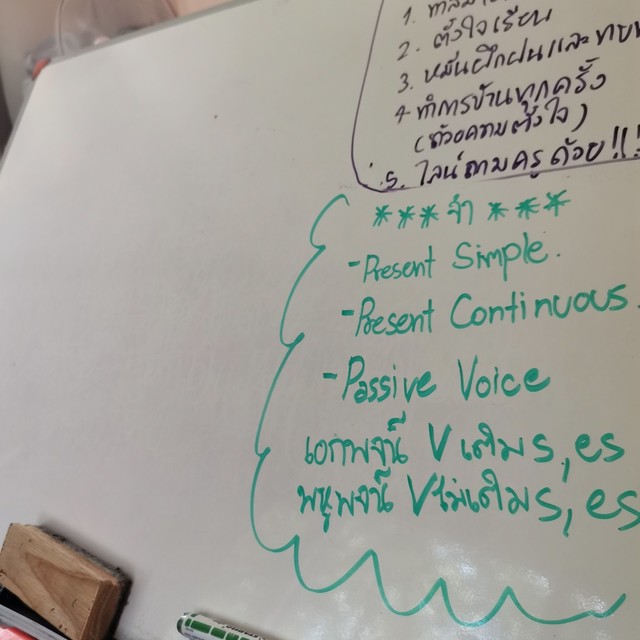 1.
2. ตั้งใจเรียน
3. หมั่นฝึกฝนและทบท
4. ทำการบ้านทุกครั้ง
(ด้วยความตั้งใจ)
5. ไลน์ถามครูด้วย!!!
***จำ***
-Present Simple.
-Present Continuous.
-Passive Voice
เอกพจน์ V เติม s, es
พหูพจน์ V ไม่เติม s, es